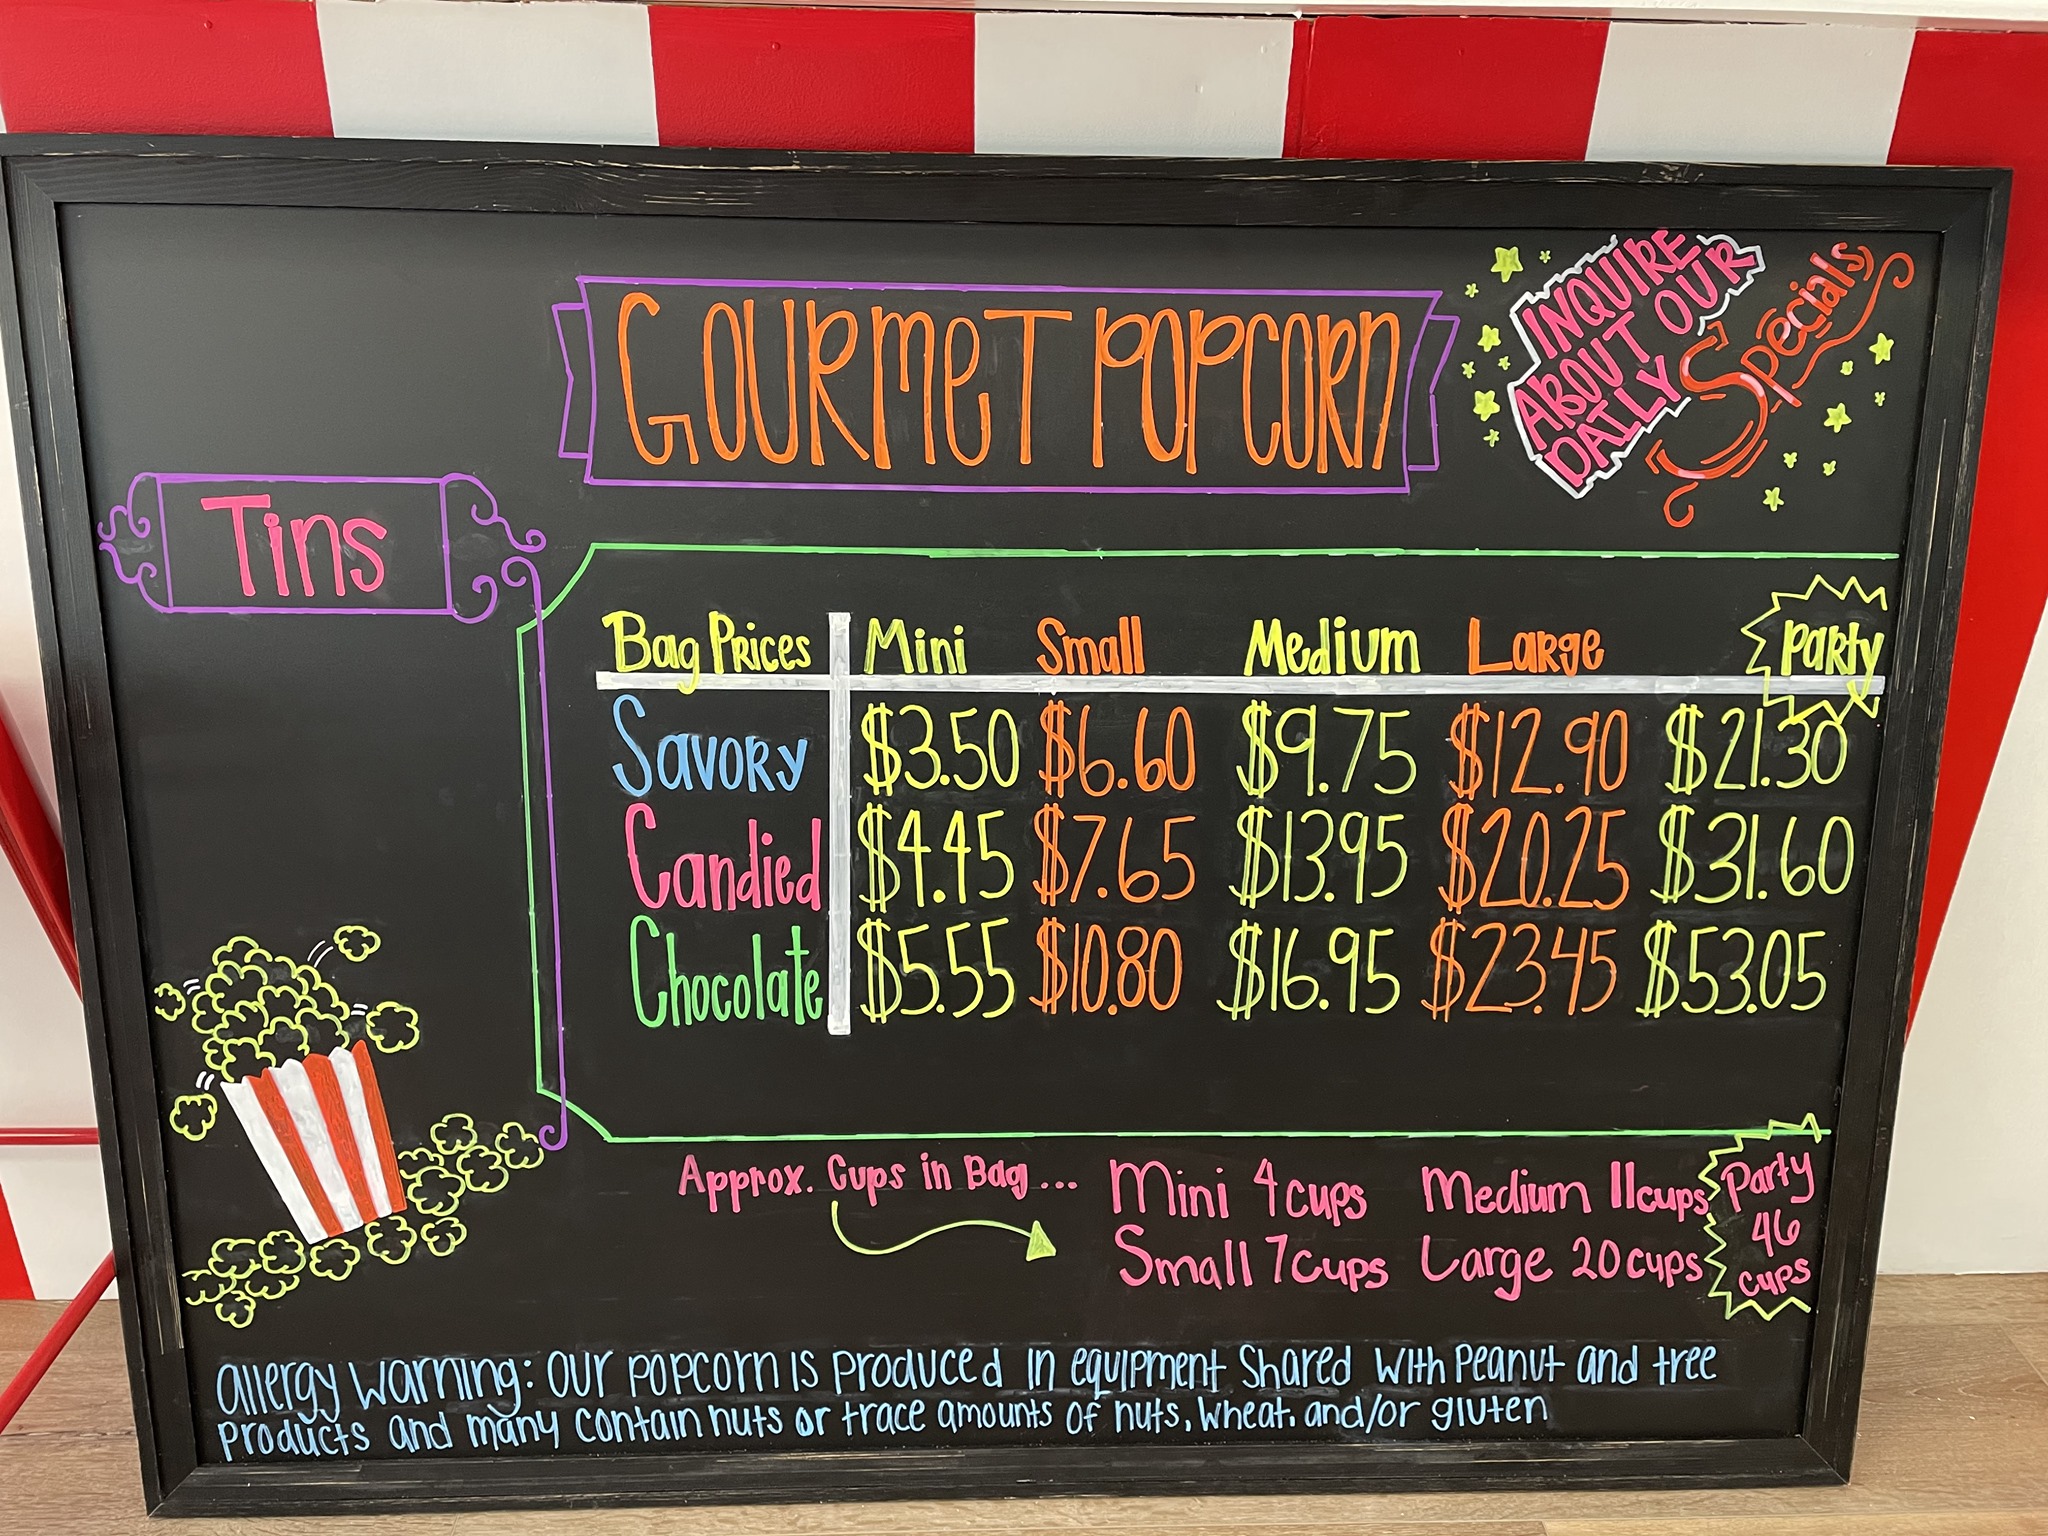 GOURMET POPCORN
INQUIRE
ABOUT OUR
DAILY
Specials
Tins
Bag Prices Mini Small Medium Large Party
Savory $3.50 $6.60 $9.75 $12.90 $21.30
Candied $4.45 $7.65 $13.95 $20.25 $31.60
Chocolate $5.55 $10.80 $16.95 $23.45 $53.05
Approx. Cups in Bag... Mini 4 cups Medium 11 cups
Small 7 cups Large 20 cups
Party
46
cups
Allergy Warning: Our popcorn is produced in equipment shared with peanut and tree
products and many contain nuts or trace amounts of nuts, wheat. and/or gluten